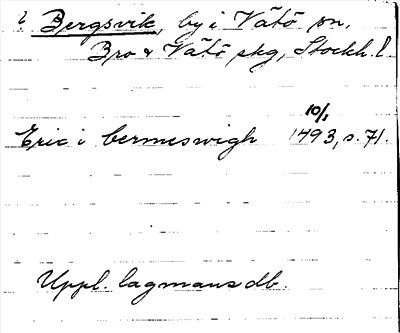 ? Bergsvik, by i Vätö sn.
Bro & Vätö skg, Stockh. l.
10/1
Eric i bermeswigh 1493, s. 71.
Uppl. lagmansdb.